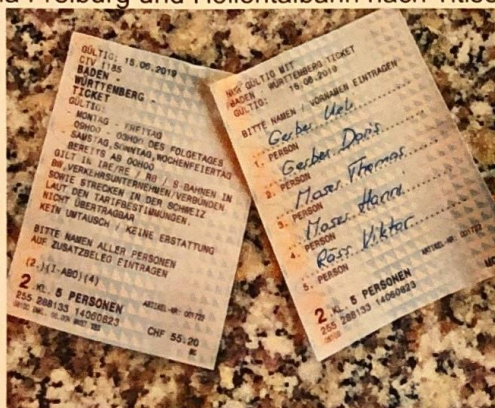 GÜLTIG: 15.06.2019
CIV 1185
BADEN -
WÜRTTEMBERG -
TICKET
GÜLTIG:
- MONTAG - FREITAG
09H00 - 03H00 DES FOLGETAGES
- SAMSTAG, SONNTAG, WOCHENFEIERTAG
BEREITS AB 00H00
GILT IN IRE/RE / RB / S-BAHNEN IN
BW, VERKEHRSUNTERNEHMEN/VERBÜNDEN
SOWIE STRECKEN IN DER SCHWEIZ
LAUT DEN TARIFBESTIMMUNGEN.
NICHT ÜBERTRAGBAR
KEIN UMTAUSCH / KEINE ERSTATTUNG
BITTE NAMEN ALLER PERSONEN
AUF ZUSATZBELEG EINTRAGEN
(2.)(1-ABO)(4)
2. KL. 5 PERSONEN
ARTIKEL-NR: 001720
255 288133 14060823
CHF 55.20
NUR GÜLTIG MIT
BADEN - WÜRTTEMBERG TICKET
GÜLTIG: 15.06.2019
BITTE NAMEN / VORNAMEN EINTRAGEN
Gerber Ueli
1. PERSON
Gerber Doris
2. PERSON
Moser Thomas
3. PERSON
Moser Hanni
4. PERSON
Viktor
5. PERSON
ARTIKEL-NR: 001722
2. KL. 5 PERSONEN
255 288133 14060823